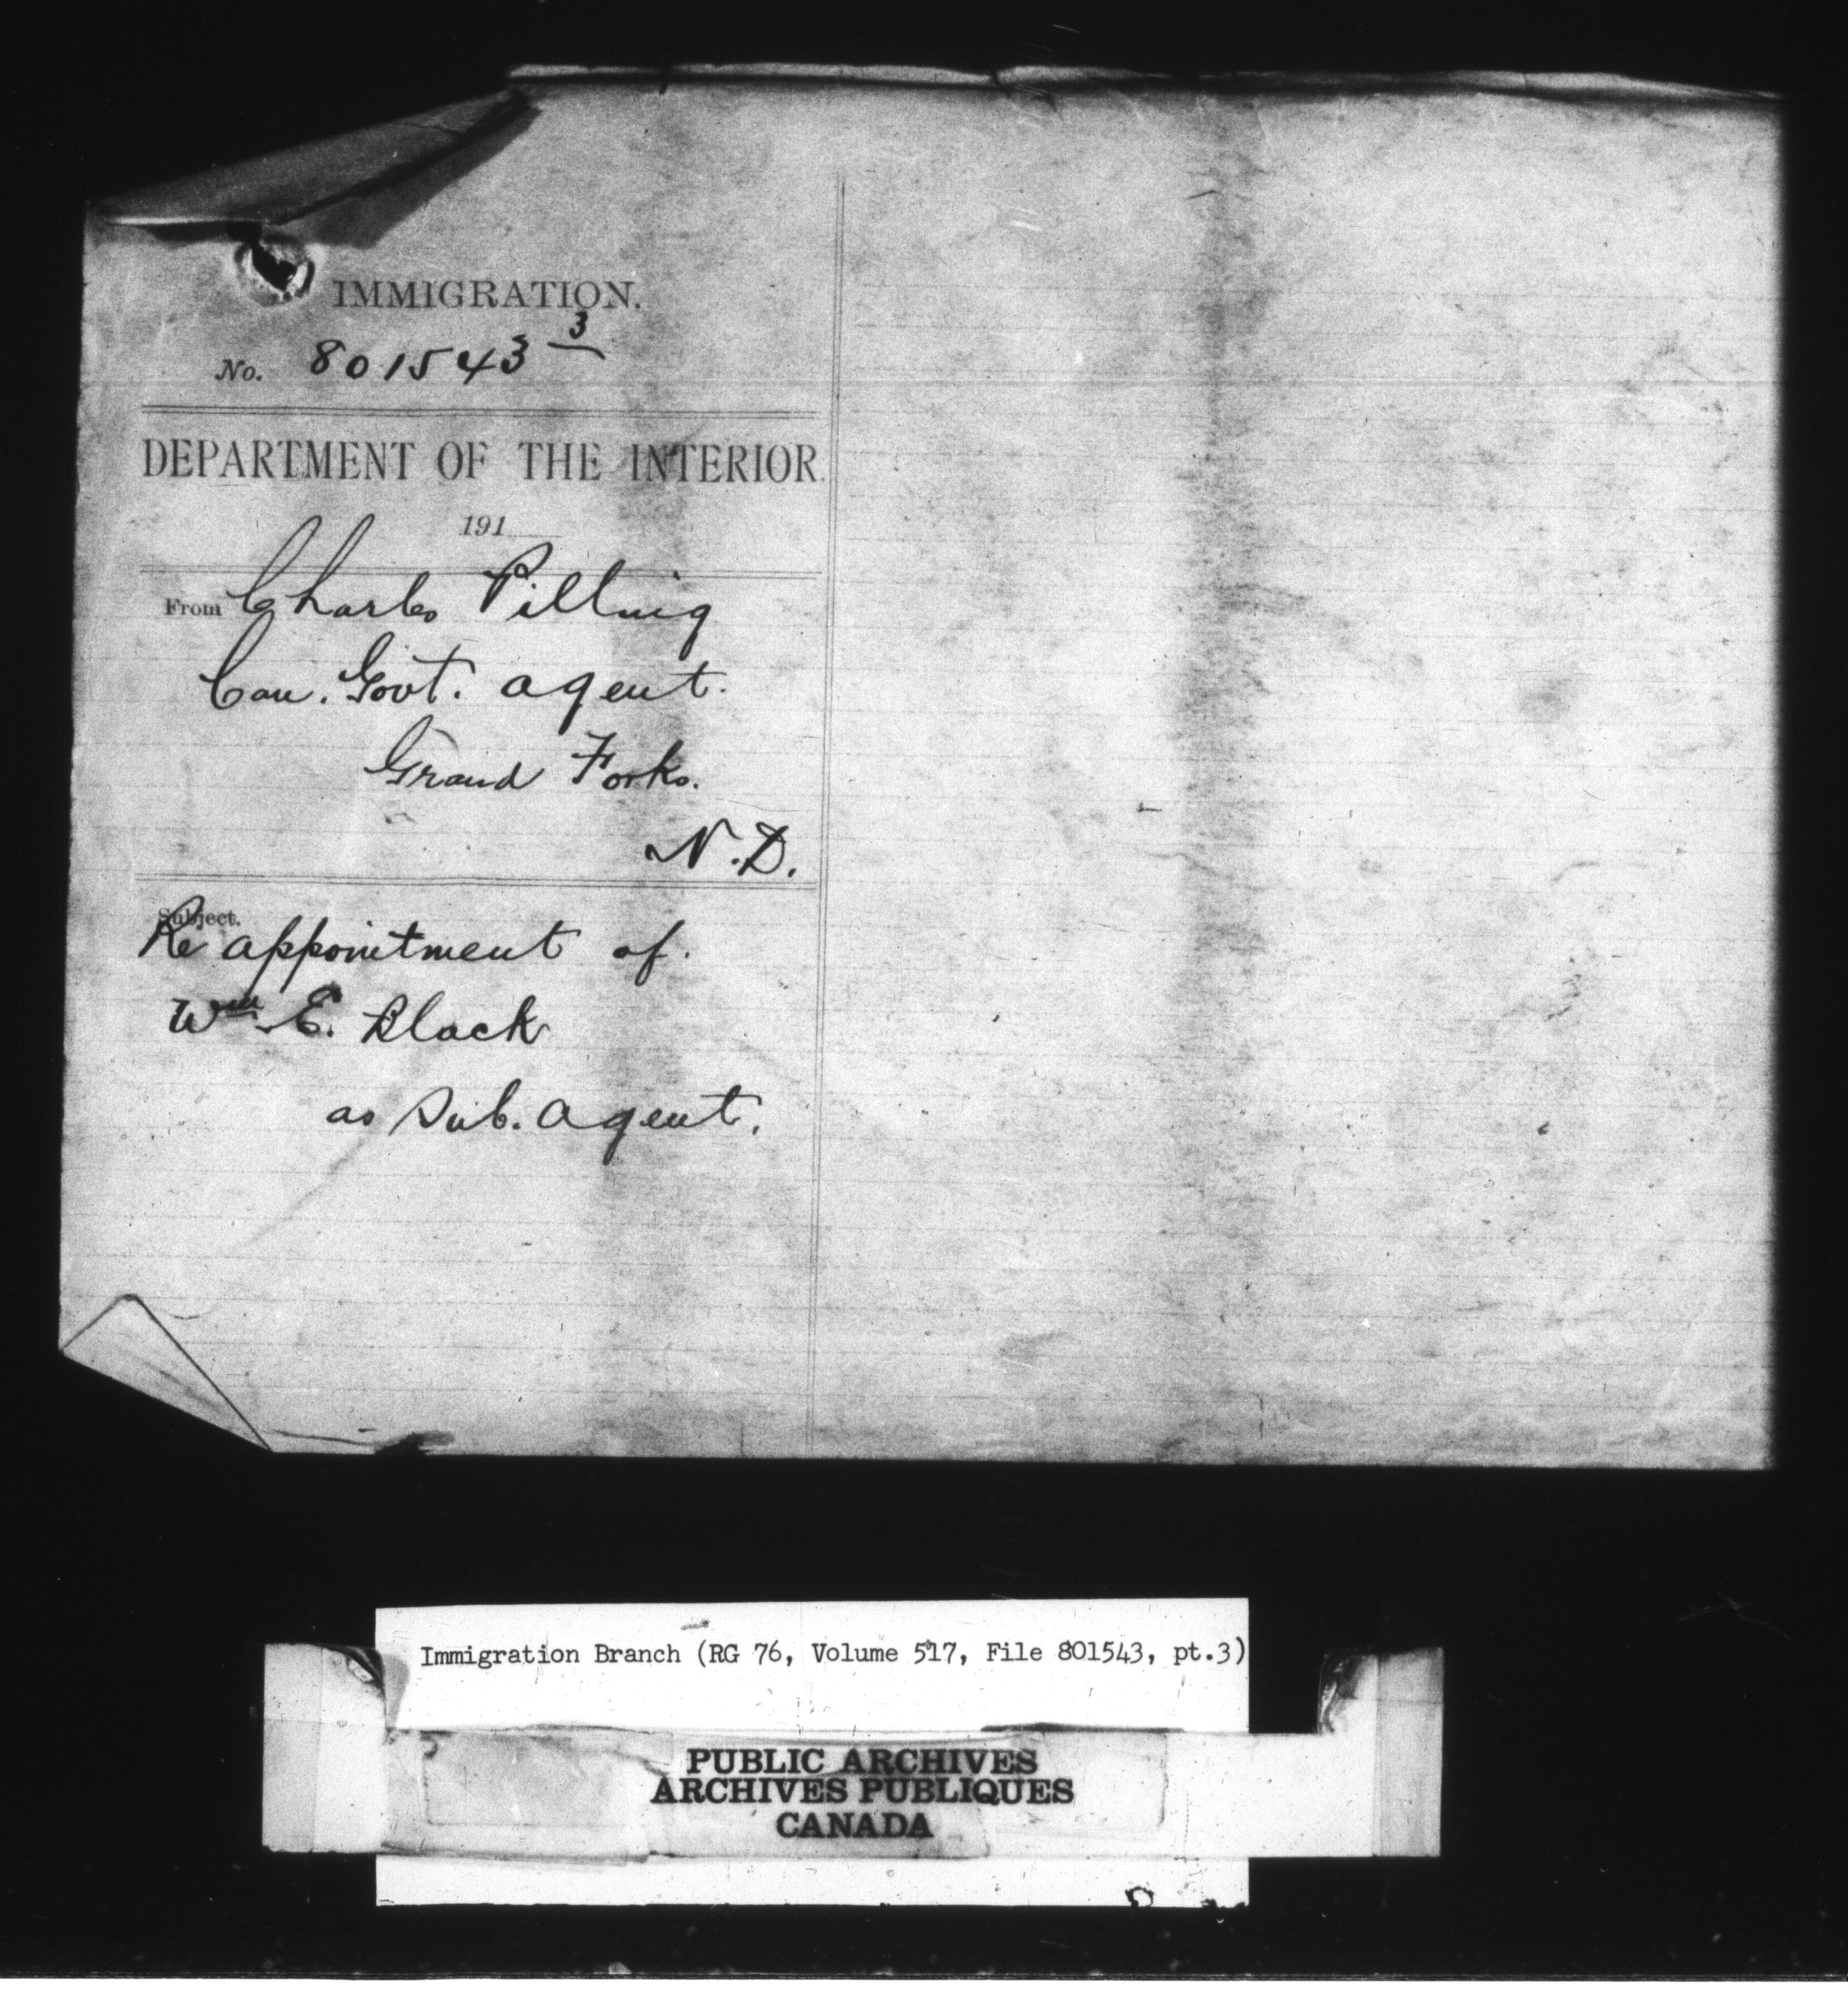 IMMIGRATION.
No. 801543 3
DEPARTMENT OF THE INTERIOR.
191
From Charles Pilling
Can. Govt. agent.
Grand Forks.
N.D.
Subject.
Re appointment of.
Wm E. Black
as Sub. agent.
Immigration Branch (RG 76, Volume 517, File 801543, pt.3)
PUBLIC ARCHIVES
ARCHIVES PUBLIQUES
CANADA